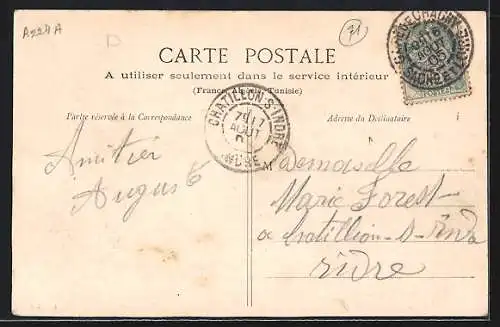 A2211A
D
71
CARTE POSTALE
A utiliser seulement dans le service intérieur
(France, Algérie, Tunisie)
Partie réservée à la Correspondance
Adresse du Destinataire
CHATILLON-S-INDRE
7E 17
AOUT
INDRE
Amitier
August
M Demoiselle
Marie Forest
a Catillion-s-Indr
indre